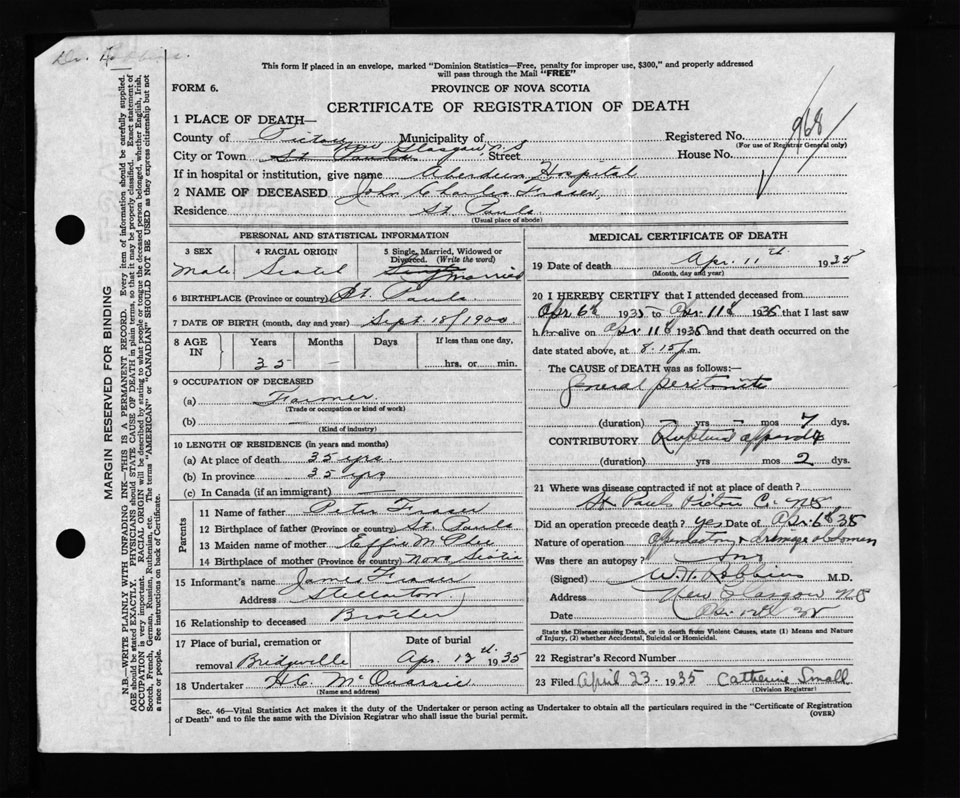 This form if placed in an envelope, marked "Dominion Statistics—Free, penalty for improper use, $300," and properly addressed
will pass through the Mail "FREE"
FORM 6.
PROVINCE OF NOVA SCOTIA
CERTIFICATE OF REGISTRATION OF DEATH
1 PLACE OF DEATH—
County of Pictou Municipality of
Registered No. 968
(For use of Registrar General only)
City or Town St. Pauls New Glasgow N.S Street House No.
If in hospital or institution, give name Aberdeen Hospital
2 NAME OF DECEASED John Charles Fraser
Residence St. Pauls
(Usual place of abode)
PERSONAL AND STATISTICAL INFORMATION
3 SEX 4 RACIAL ORIGIN 5 Single, Married, Widowed or
Divorced. (Write the word)
Male Scotch Single Married
6 BIRTHPLACE (Province or country) St. Pauls
7 DATE OF BIRTH (month, day and year) Sept. 18/1900
8 AGE IN Years Months Days If less than one day,
35 — hrs. or min.
9 OCCUPATION OF DECEASED
(a) Farmer
(Trade or occupation or kind of work)
(b) —
(Kind of industry)
10 LENGTH OF RESIDENCE (in years and months)
(a) At place of death 35 yrs.
(b) In province 35 yrs
(c) In Canada (if an immigrant) —
Parents
11 Name of father Peter Fraser
12 Birthplace of father (Province or country) St. Pauls
13 Maiden name of mother Effie McPhee
14 Birthplace of mother (Province or country) Nova Scotia
15 Informant's name James Fraser
Address Stellarton
16 Relationship to deceased Brother
17 Place of burial, cremation or Date of burial
removal Bridgeville Apr. 12th. 1935
18 Undertaker H.C. McQuarrie
(Name and address)
MEDICAL CERTIFICATE OF DEATH
19 Date of death Apr. 11th 1935
(Month, day and year)
20 I HEREBY CERTIFY that I attended deceased from
Apr. 6th 1935 to Apr. 11th 1935 that I last saw
him alive on Apr. 11th 1935 and that death occurred on
date stated above, at 8.15 p.m.
The CAUSE of DEATH was as follows:—
General peritonitis
(duration) — yrs — mos 7 dys.
CONTRIBUTORY Ruptured appendix
(duration) yrs mos 2 dys.
21 Where was disease contracted if not at place of death?
St Pauls Pictou C. NS
Did an operation precede death? yes Date of Apr. 6th 35
Nature of operation
Was there an autopsy?
(Signed) W.H. Robbins M.D.
Address New Glasgow NS
Date Apr. 12th 35
State the Disease causing Death, or in death from Violent Causes, state (1) Means and
Nature of Injury, (2) whether Accidental, Suicidal or Homicidal.
22 Registrar's Record Number
23 Filed April 23 1935 Catherine Small
(Division Registrar)
Sec. 46—Vital Statistics Act makes it the duty of the Undertaker or person acting as Undertaker to obtain all the particulars required in the "Certificate of Registration
of Death" and to file the same with the Division Registrar who shall issue the burial permit.
(OVER)
MARGIN RESERVED FOR BINDING
N.B.—WRITE PLAINLY WITH UNFADING INK—THIS IS A PERMANENT RECORD. Every item of information should be carefully supplied.
AGE should be stated EXACTLY. PHYSICIANS should STATE CAUSE OF DEATH in plain terms, so that it may be properly classified. Exact statement of
OCCUPATION is very important. RACIAL ORIGIN will be described by stating to what people or tongue the deceased person belonged, whether English, Irish,
Scotch, French, German, Russian, Ruthenian, etc. The terms "AMERICAN" or "CANADIAN" SHOULD NOT BE USED as they express citizenship but not
a race or people. See instructions on back of Certificate.